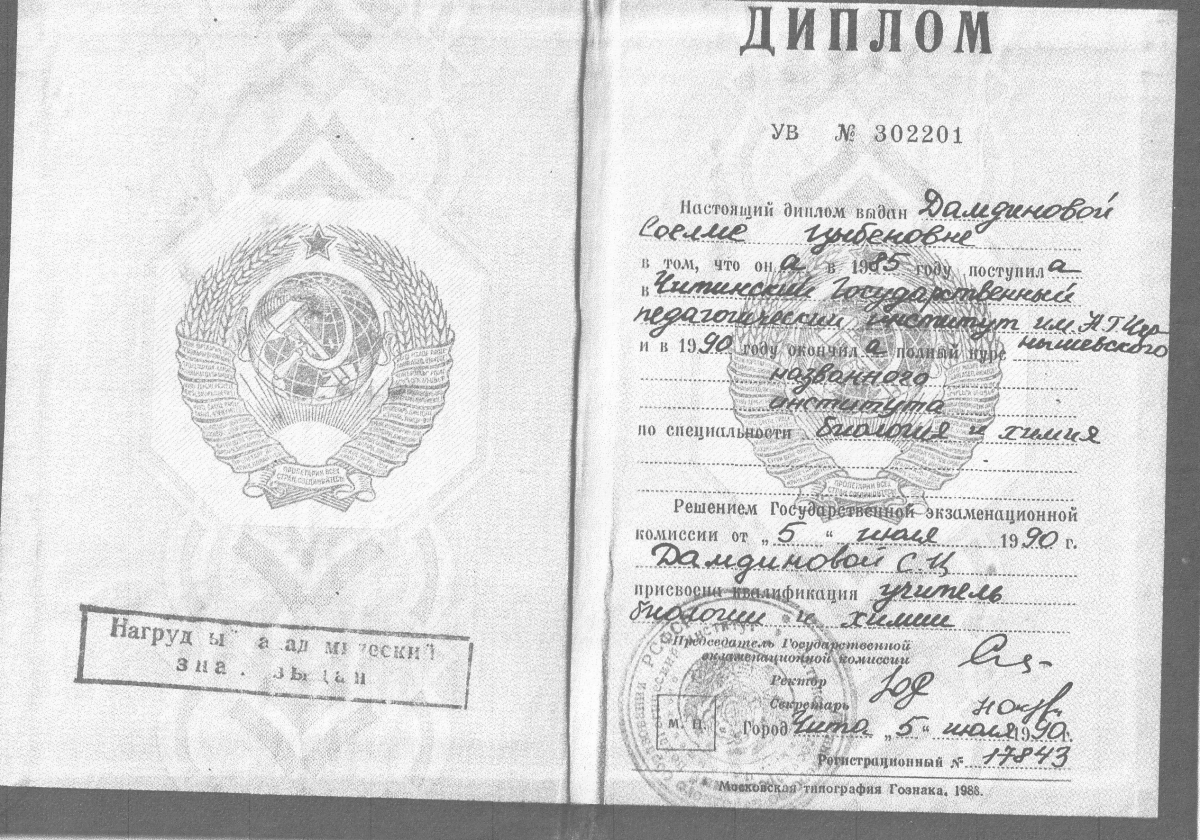 ПРОЛЕТАРИИ ВСЕХ
СТРАН, СОЕДИНЯЙТЕСЬ!
Нагруд ы а ад м ческий
зна . выдан
ДИПЛОМ
УВ № 302201
Настоящий диплом выдан Дамдиновой
Соелме Цыбеновне
в том, что он а в 1985 году поступил а
в Читинский Государственный
педагогический институт им. Н.Г. Чер
нышевского
и в 1990 году окончил а полный курс
названного
института
по специальности биология и химия
ПРОЛЕТАРИИ ВСЕХ
Решением Государственной экзаменационной
комиссии от „5“ июля 1990 г.
Дамдиновой С.Ц
присвоена квалификация учитель
биологии и химии
Председатель Государственной
экзаменационной комиссии
Ректор
Секретарь
М. П.
Город Чита „5“ июля 1990 г.
Регистрационный № 17843
Московская типография Гознака, 1988.